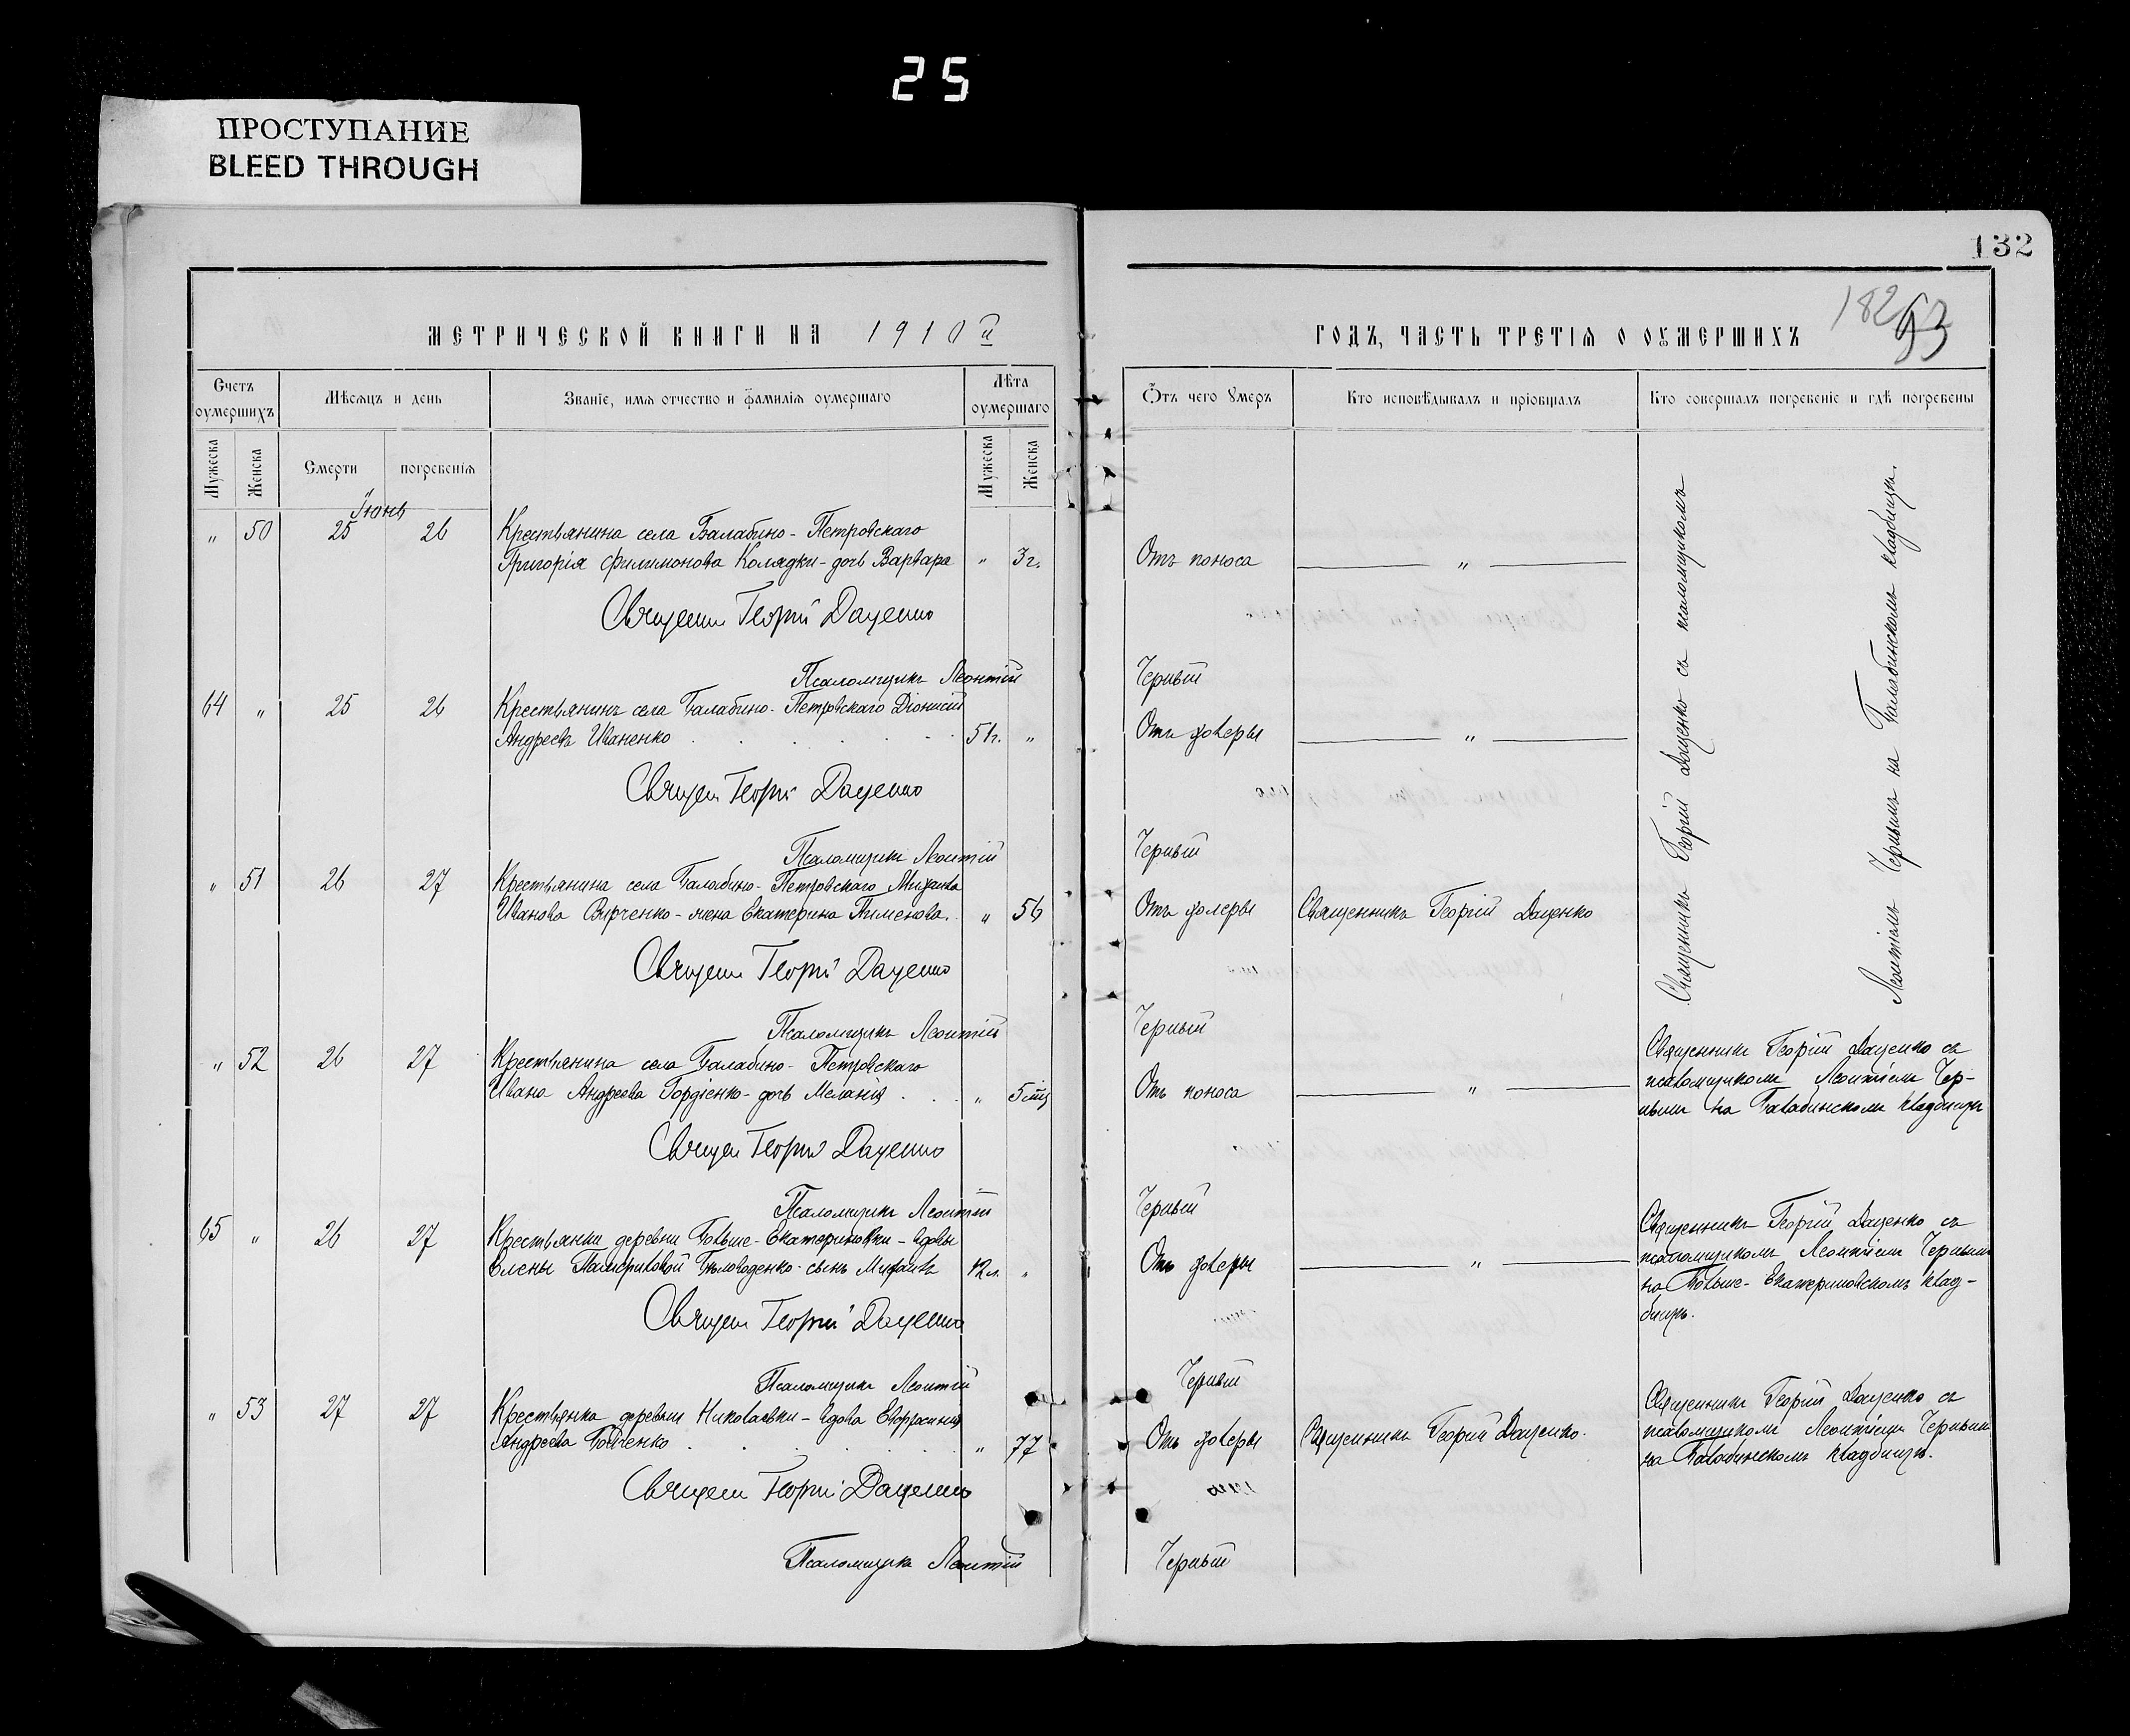 25
ПРОСТУПАНИЕ
BLEED THROUGH
132
182
93
МЕТРИЧЕСКОЙ КНИГИ НА 1910й
ГОДЪ, ЧАСТЬ ТРЕТІѦ О ОУМЕРШИХЪ
Счетъ оумершихъ
Мѣсѧцъ и день
Званіе, имѧ отчество и фамиліѧ оумершаго
Лѣта оумершаго
Ѿтъ чего умеръ
Кто исповѣдывалъ и пріобщалъ
Кто совершалъ погребеніе и гдѣ погребены
Мужеска
Женска
Смерти
погребеніѧ
Мужеска
Женска
Іюнь
" 50 25 26 Крестьянина села Балабино-Петровскаго
Григорія Филимонова Колядки - дочь Варвара " 3 г. Отъ поноса "
Священ Георгій Даценко
Псаломщикъ Леонтій Черный
64 " 25 26 Крестьянинъ села Балабино-Петровскаго Діонисій
Андреевъ Иваненко 51 г. " Отъ холеры "
Священ Георгій Даценко
Псаломщикъ Леонтій Черный
" 51 26 27 Крестьянина села Балабино-Петровскаго Михаила
Иванова - жена Екатерина Пименова. " 56 Отъ холеры Священникъ Георгій Даценко
Священ Георгій Даценко
Псаломщикъ Леонтій Черный
Священникъ Георгій Даценко съ псаломщикомъ
Леонтіемъ Чернымъ на Балабинскомъ кладбищѣ.
" 52 26 27 Крестьянина села Балабино-Петровскаго
Ивана Андреева Гордіенко - дочь Меланія " 5 мц Отъ поноса "
Священникъ Георгій Даценко съ
псаломщикомъ Леонтіемъ Чер-
нымъ на Балабинскомъ кладбищѣ
Священ Георгій Даценко
Псаломщикъ Леонтій Черный
65 " 26 27 Крестьянки деревни Больше-Екатериновки - вдовы
Елены - сынъ Михаилъ 12 л. " Отъ холеры "
Священникъ Георгій Даценко съ
псаломщикомъ Леонтіемъ Чернымъ
на Больше-Екатериновскомъ клад-
бищѣ.
Священ Георгій Даценко
Псаломщикъ Леонтій Черный
" 53 27 27 Крестьянка деревни Николаевки - вдова Евфросинія
Андреева Бойченко " 77 Отъ холеры Священникъ Георгій Даценко.
Священникъ Георгій Даценко съ
псаломщикомъ Леонтіемъ Чернымъ
на Балабинскомъ кладбищѣ.
Священ Георгій Даценко
Псаломщикъ Леонтій Черный